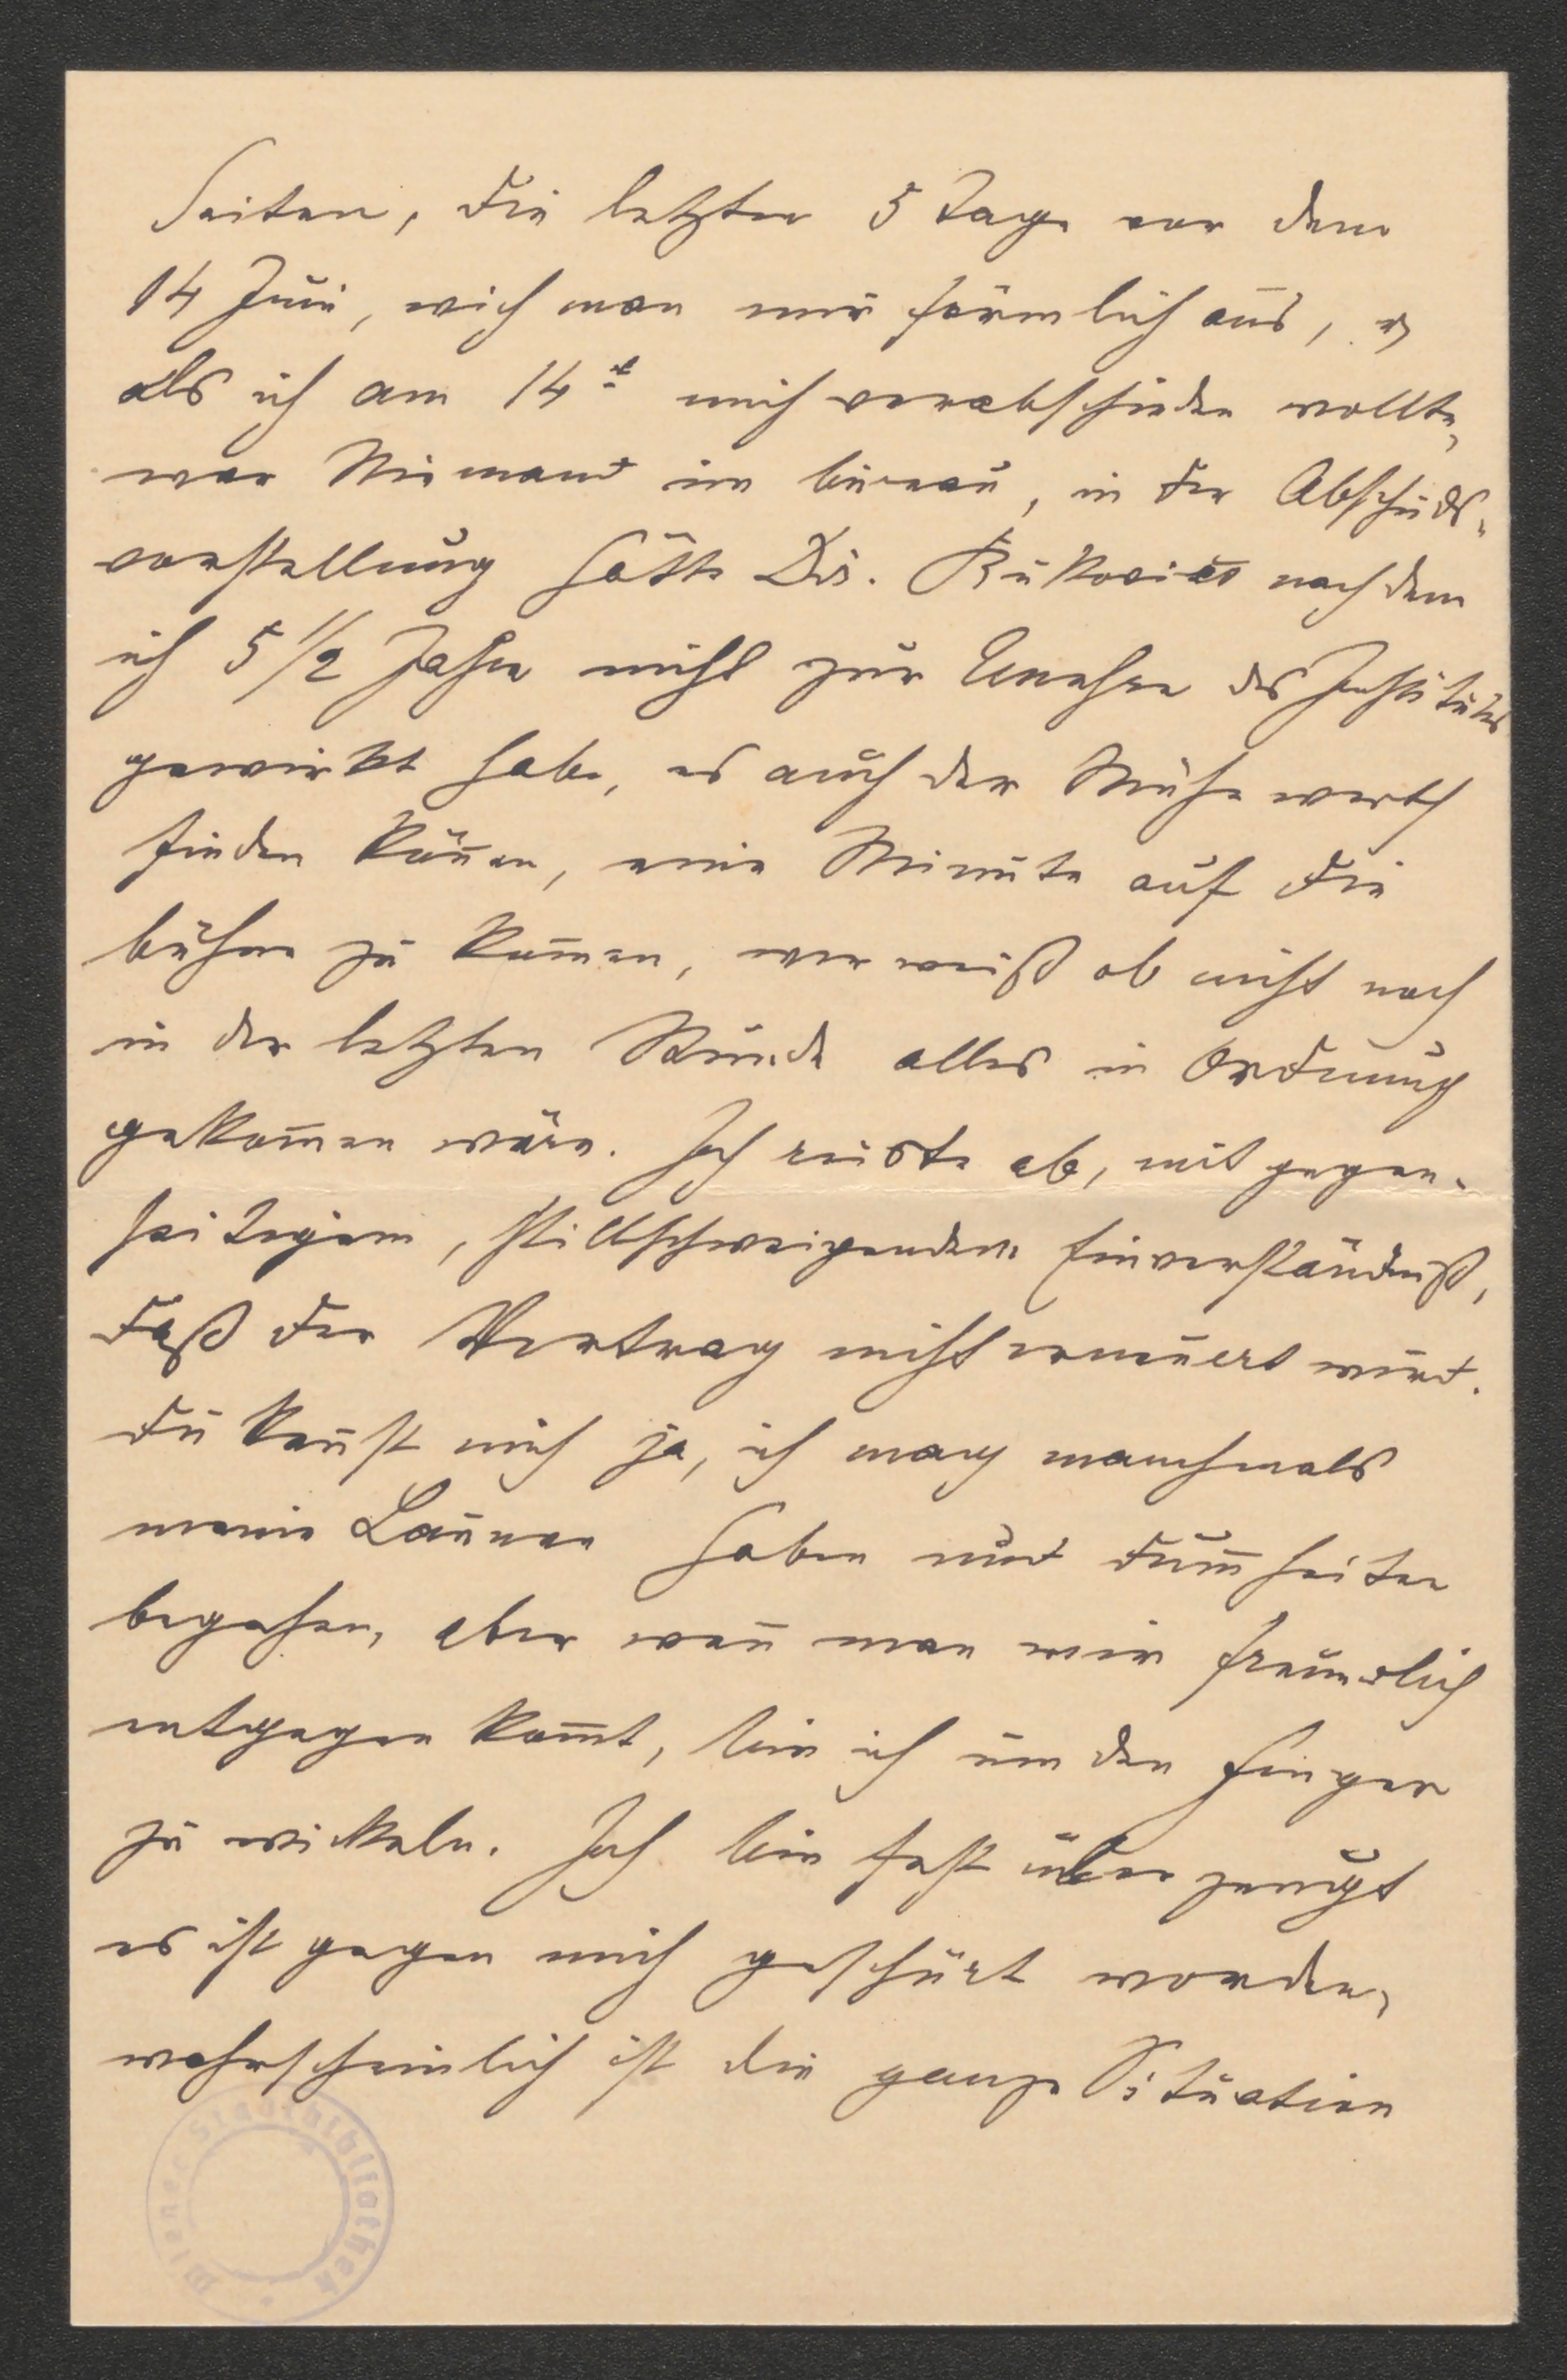 Seiten, die letzten 5 Tage vor dem
14 Juni, wich man mir förmlich aus, u
als ich am 14t mich verabschieden wollte,
war Niemand im büreau, in der Abschieds-
vorstellung hätte Dir. Bukovics nach dem
ich 5 1/2 Jahre nicht zur Unehre des Institutes
gewirkt habe, es auch der Mühe werth
finden können, eine Minute auf die
bühne zu kommen, wer weiß ob nicht noch
in der letzten Stunde alles in Ordnung
gekommen wäre. Ich reiste ab, mit gegen-
seitigem, stillschweigendem Einverständniß,
daß der Vertrag nicht erneuert wird.
Du kennst mich ja, ich mag manchmals
meine Launen haben und Dummheiten
begehen, aber wenn man mir freundlich
entgegen kommt, bin ich um den Finger
zu wickeln. Ich bin fest überzeugt
es ist gegen mich geschürt worden,
wahrscheinlich ist die ganze Situation
Wiener Stadtbibliothek